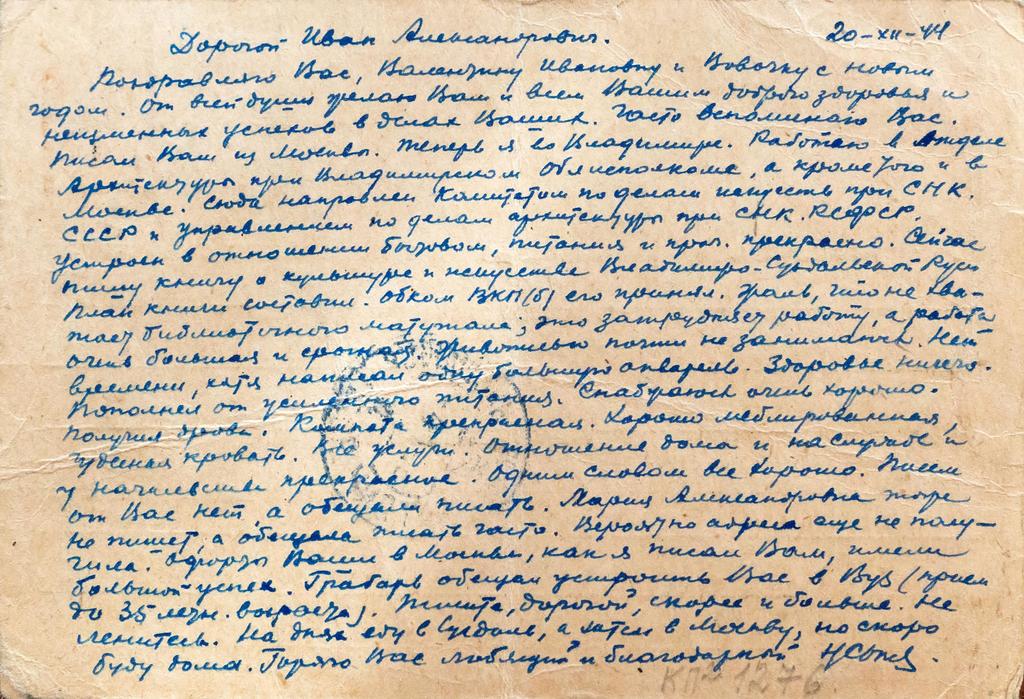 Дорогой Иван Александрович.
20-XII-44
Поздравляю Вас, Валентину Ивановну и Вовочку с новым
годом. От всей души желаю Вам и всем Вашим доброго здоровья и
неизменных успехов в делах Ваших. Часто вспоминаю Вас.
Писал Вам из Москвы. Теперь я во Владимире. Работаю в отделе
Архитектуры при Владимирском Облисполкоме, а кроме того и в
Москве. Сюда направлен Комитетом по делам искусств при СНК.
СССР и управлением по делам архитектуры при СНК. РСФСР.
Устроен в отношении бытовом, питания и проч. прекрасно. Сейчас
пишу книгу о культуре и искусстве Владимиро-Суздальской Руси
План книги составил. Обком ВКП(б) его принял. Жаль, что не хва-
тает библиотечного материала; это затрудняет работу, а работа
очень большая и срочная. Живописью почти не занимаюсь. Нет
времени, хотя написал одну большую акварель. Здоровье ничего.
Пополнел от усиленного питания. Снабжаюсь очень хорошо.
Получил дрова. Комната прекрасная. Хорошо меблированная,
чудесная кровать. Все услуги. Отношение дома и на службе и
у начальства прекрасное. Одним словом все хорошо. Писем
от Вас нет, а обещали писать. Мария Александровна тоже
не пишет, а обещала писать часто. Вероятно адреса еще не полу-
чила. Офорты Ваши в Москве, как я писал Вам, имели
большой успех. Грабарь обещал устроить Вас в Вуз (прием
до 35 летн. возраста). Пишите, дорогой, скорее и больше. Не
ленитесь. На днях еду в Суздаль, а затем в Москву, но скоро
буду дома. Горячо Вас любящий и благодарный
КП-1276